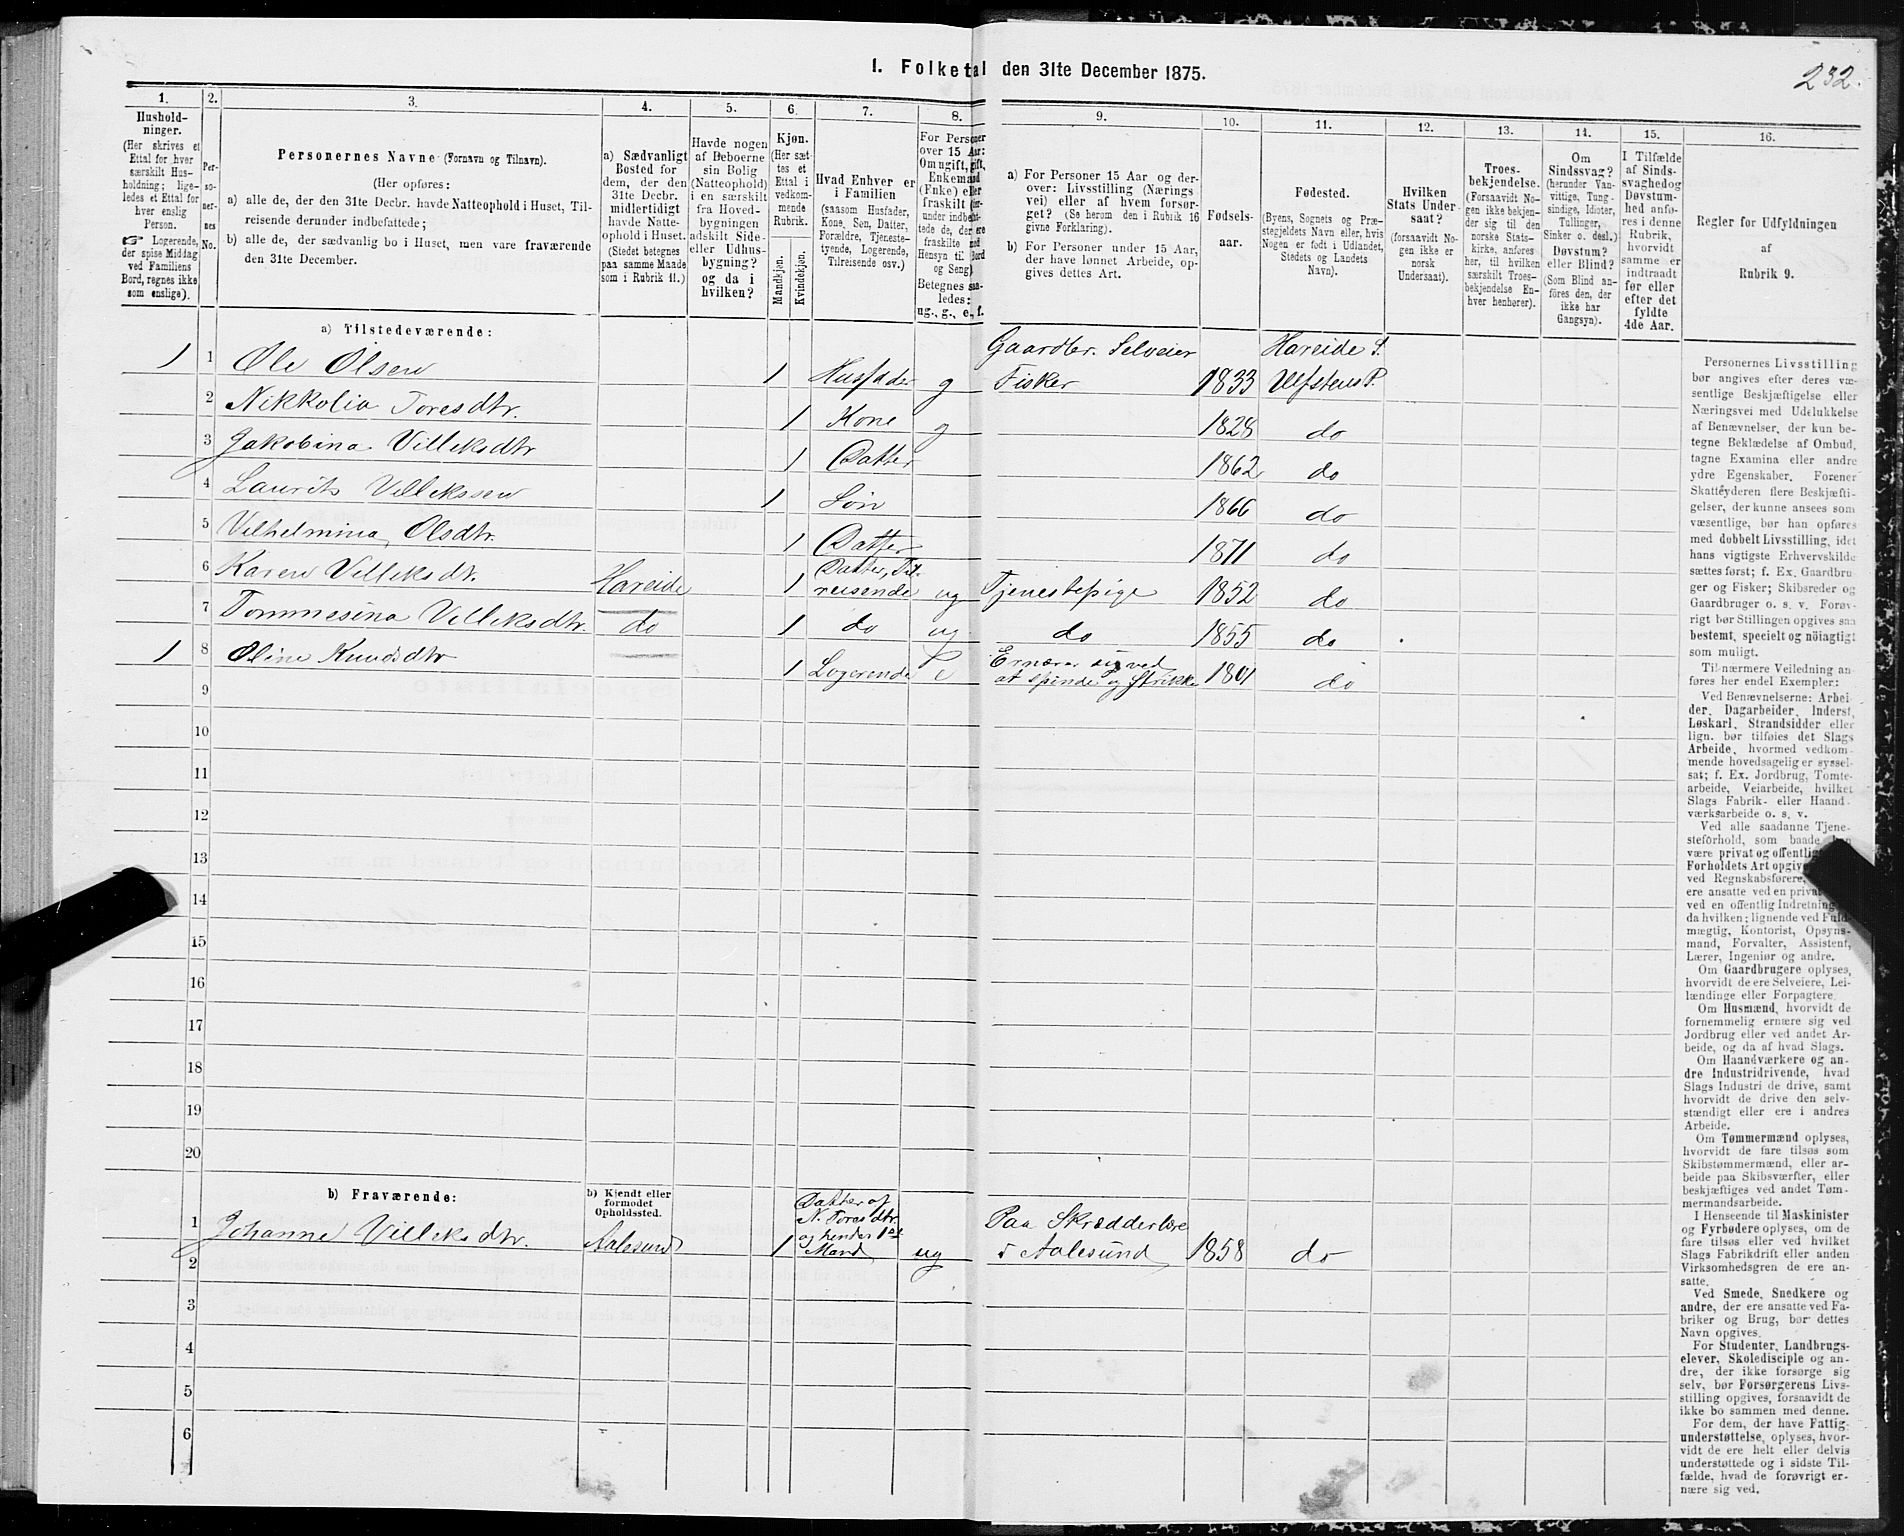 I. Folketal den 31te December 1875.
232.
1.
Hushold-
ninger.
(Her skrives et
Ettal for hver
særskilt Hus-
holdning; lige-
ledes et Ettal for
hver enslig
Person.
☞ Logerende,
der spise Middag
ved Familiens
Bord, regnes ikke
som enslige).
2.
Per-
so-
ner-
nes
No.
3.
Personernes Navne (Fornavn og Tilnavn).
(Her opføres:
a) alle de, der den 31te Decbr. havde Natteophold i Huset, Til-
reisende derunder indbefattede;
b) alle de, der sædvanlig bo i Huset, men vare fraværende
den 31te December.
4.
a) Sædvanligt
Bosted for
dem, der den
31te Decbr.
midlertidigt
havde Natte-
ophold i Huset.
(Stedet betegnes
paa samme Maade
som i Rubrik 11.)
5.
Havde nogen
af Beboerne
sin Bolig
(Natteophold)
i en særskilt
fra Hoved-
bygningen
adskilt Side-
eller Udhus-
bygning?
og da i
hvilken?
6.
Kjøn.
(Her sæt-
tes et
Ettal i
vedkom-
mende
Rubrik.
Mandkjøn.
Kvindekjøn.
7.
Hvad Enhver er
i Familien
(saasom Husfader,
Kone, Søn, Datter,
Forældre, Tjeneste-
tyende, Logerende,
Tilreisende osv.)
8.
For Personer
over 15 Aar:
Om ugift, gift,
Enkemand
(Enke) eller
fraskilt
Betegnes saa-
ledes:
ug., g., e., f.
9.
a) For Personer 15 Aar og der-
over: Livsstilling (Nærings
vei) eller af hvem forsør-
get? (Se herom den i Rubrik 16
givne Forklaring).
b) For Personer under 15 Aar,
der have lønnet Arbeide, op-
gives dettes Art.
10.
Fødsels-
aar.
11.
Fødested.
(Byens, Sognets og Præ-
stegjeldets Navn eller, hvis
Nogen er født i Udlandet,
Stedets og Landets
Navn).
12.
Hvilken
Stats Under-
saat?
(forsaavidt No-
gen ikke er
norsk
Undersaat).
13.
Troes-
bekjendelse.
(Forsaavidt No-
gen ikke bekjen-
der sig til den
norske Stats-
kirke, anføres
her, til hvilken
særskilt Troes-
bekjendelse En-
hver henhører).
14.
Om
Sindssvag?
(herunder Van-
vittige, Tung-
sindige, Idioter,
Tullinger,
Sinker o. desl.)
Døvstum?
eller Blind?
(Som Blind an-
føres den, der
ikke har
Gangsyn).
15.
I Tilfælde
af Sinds-
svaghed og
Døvstum-
hed anfø-
res i denne
Rubrik,
hvorvidt
samme er
indtraadt
før eller
efter det
fyldte
4de Aar.
16.
Regler for Udfyldningen
af
Rubrik 9.
a) Tilstedeværende:
Gaardbr. Selveier Hareide S.
1 1 Ole Olsen 1 Husfader g Fisker 1833 Ulfstens P.
2 Nikkolia Toresdtr. 1 Kone g 1828 do
3 Jakobina Villeksdtr 1 Datter 1862 do
4 Laurits Villekssen 1 Søn 1866 do
5 Vilhelmina Olsdtr. 1 Datter 1871 do
6 Karen Villeksdt. Hareide 1 Datter, Til-
reisende ug Tjenestepige 1852 do
7 Tommesina Villeksdtr. do 1 do ug do 1855 do
1 8 Oline Knudsdtr 1 Logerende e Ernærer sig ved
at spinde og strikke 1801 do
9
10
11
12
13
14
15
16
17
18
19
20
b) Fraværende:
b) Kjendt eller
formodet
Opholdssted.
1 Johanne Villeksdtr. Aalesund 1 Datter af
N. Toresdtr.
og hendes 1ste
Mand ug Paa Skrædderlære
i Aalesund 1858 do
2
3
4
5
6
Personernes Livsstilling
bør angives efter deres væ-
sentlige Beskjæftigelse eller
Næringsvei med Udelukkelse
af Benævnelser, der kun be-
tegne Beklædelse af Ombud,
tagne Examina eller andre
ydre Egenskaber. Forener
Skatteyderen flere Beskjæfti-
gelser, der kunne ansees som
væsentlige, bør han opføres
med dobbelt Livsstilling, idet
hans vigtigste Erhvervskilde
sættes først; f. Ex. Gaardbru-
ger og Fisker; Skibsreder og
Gaardbruger o. s. v. Forøv-
rigt bør Stillingen opgives saa
bestemt, specielt og nøiagtigt
som muligt.
Til nærmere Veiledning an-
føres her endel Exempler:
Ved Benævnelserne: Arbei-
der, Dagarbeider, Inderst,
Løskarl, Strandsidder eller
lign. bør tilføies det Slags
Arbeide, hvormed vedkom-
mende hovedsagelig er syssel-
sat; f. Ex. Jordbrug, Tomte-
arbeide, Veiarbeide, hvilket
Slags Fabrik- eller Haand-
værksarbeide o. s. v.
Ved alle saadanne Tjene-
steforhold, som baade
være privat og offentlig
Forholdets Art opgives
ved Regnskabsførere,
ere ansatte ved en privat
ved en offentlig Indretning
da hvilken; lignende ved Fuld-
mægtig, Kontorist, Opsyns-
mand, Forvalter, Assistent,
Lærer, Ingeniør og andre.
Om Gaardbrugere oplyses,
hvorvidt de ere Selveiere, Lei-
lændinge eller Forpagtere.
Om Husmænd, hvorvidt de
fornemmelig ernære sig ved
Jordbrug eller ved andet Ar-
beide, og da af hvad Slags.
Om Haandværkere og an-
dre Industridrivende, hvad
Slags Industri de drive, samt
hvorvidt de drive den selv-
stændigt eller ere i andres
Arbeide.
Om Tømmermænd oplyses,
hvorvidt de fare tilsøs som
Skibstømmermænd, eller ar-
beide paa Skibsværfter, eller
beskjæftiges ved andet Tøm-
mermandsarbeide.
I Henseende til Maskinister
og Fyrbødere oplyses, om de
fare tilsøs eller ved hvilket
Slags Fabrikdrift eller anden
Virksomhedsgren de ere an-
satte.
Ved Smede, Snedkere og
andre, der ere ansatte ved Fa-
briker og Brug, bør dettes
Navn opgives.
For Studenter, Landbrugs-
elever, Skoledisciple og an-
dre, der ikke forsørge sig
selv, bør Forsørgerens Livs-
stilling opgives, forsaavidt de
ikke bo sammen med denne.
For dem, der have Fattig-
understøttelse, oplyses, hvor-
vidt de ere helt eller delvis
understøttede og i sidste Til-
fælde, hvad de forøvrigt er-
nære sig ved.